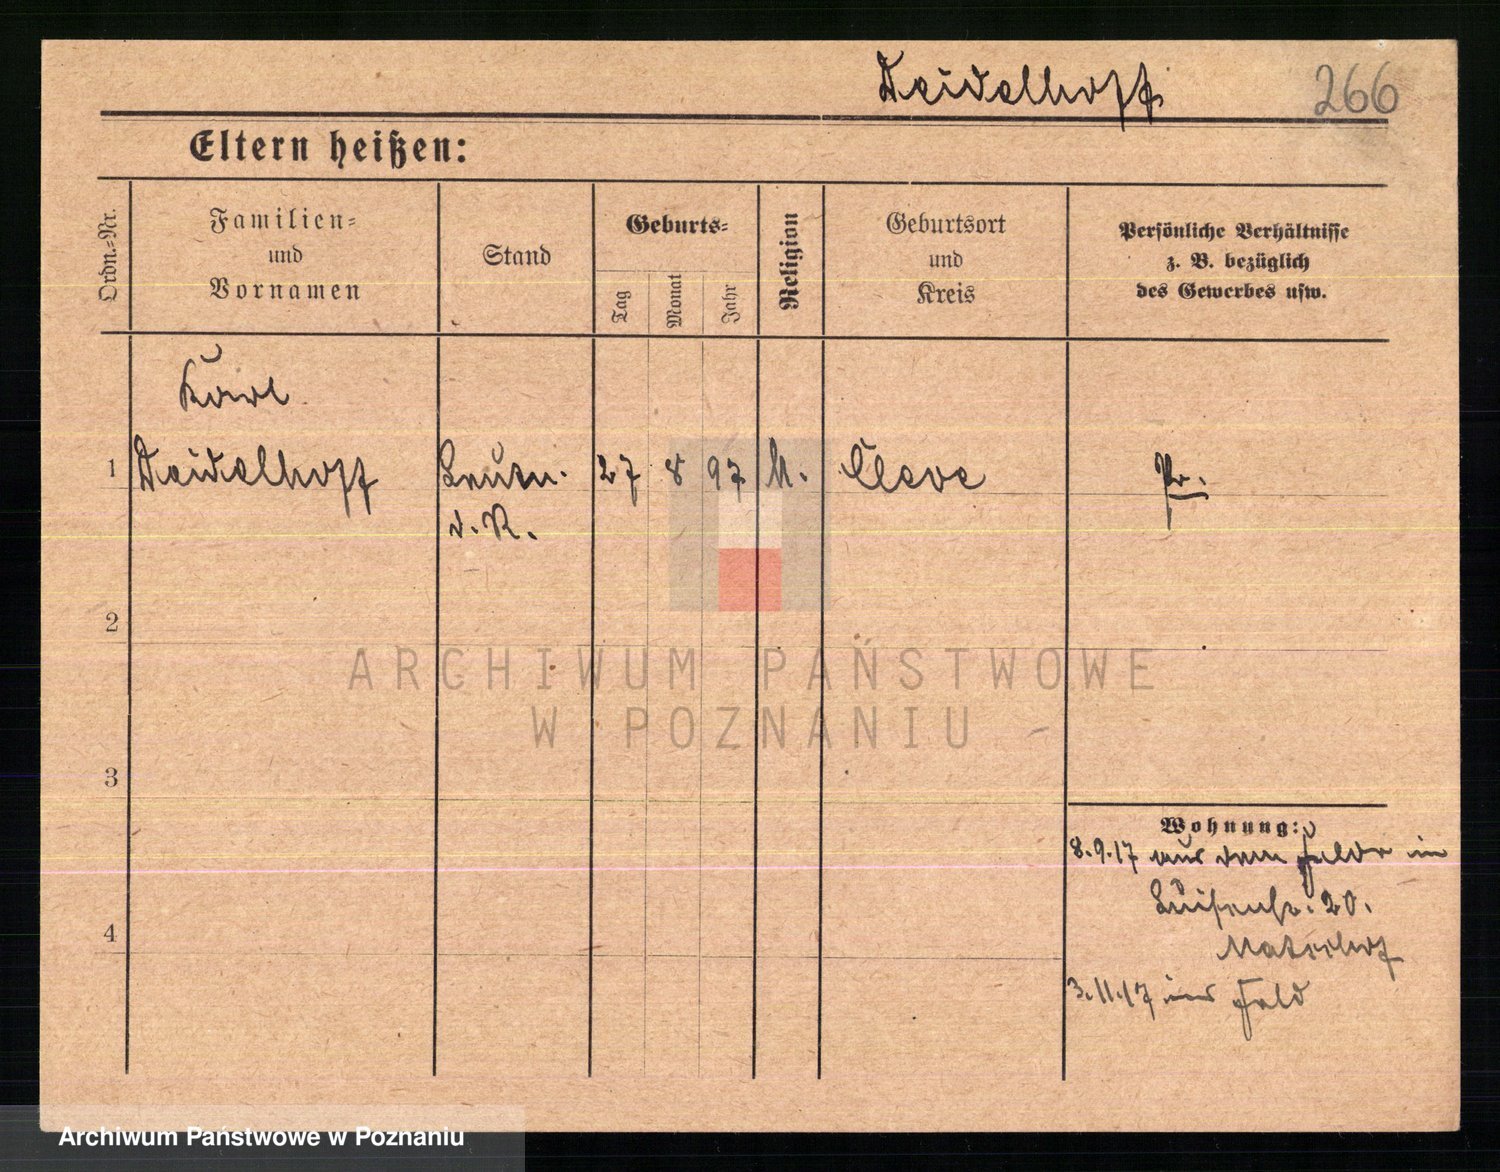 Deidelhoff 266
Eltern heißen:
Ordn.-Nr.
Familien-
und
Vornamen
Stand
Geburts-
Tag
Monat
Jahr
Religion
Geburtsort
und
Kreis
Persönliche Verhältnisse
z. B. bezüglich
des Gewerbes usw.
Karl
1 Deidelhoff Leutn. 27 8 97 k. Cleve Pr.
d. R.
2
3
4
Wohnung:
8.9.17 aus dem Felde in
Luisenstr. 20.
3.11.17 ins Feld
ARCHIWUM PAŃSTWOWE
W POZNANIU
Archiwum Państwowe w Poznaniu